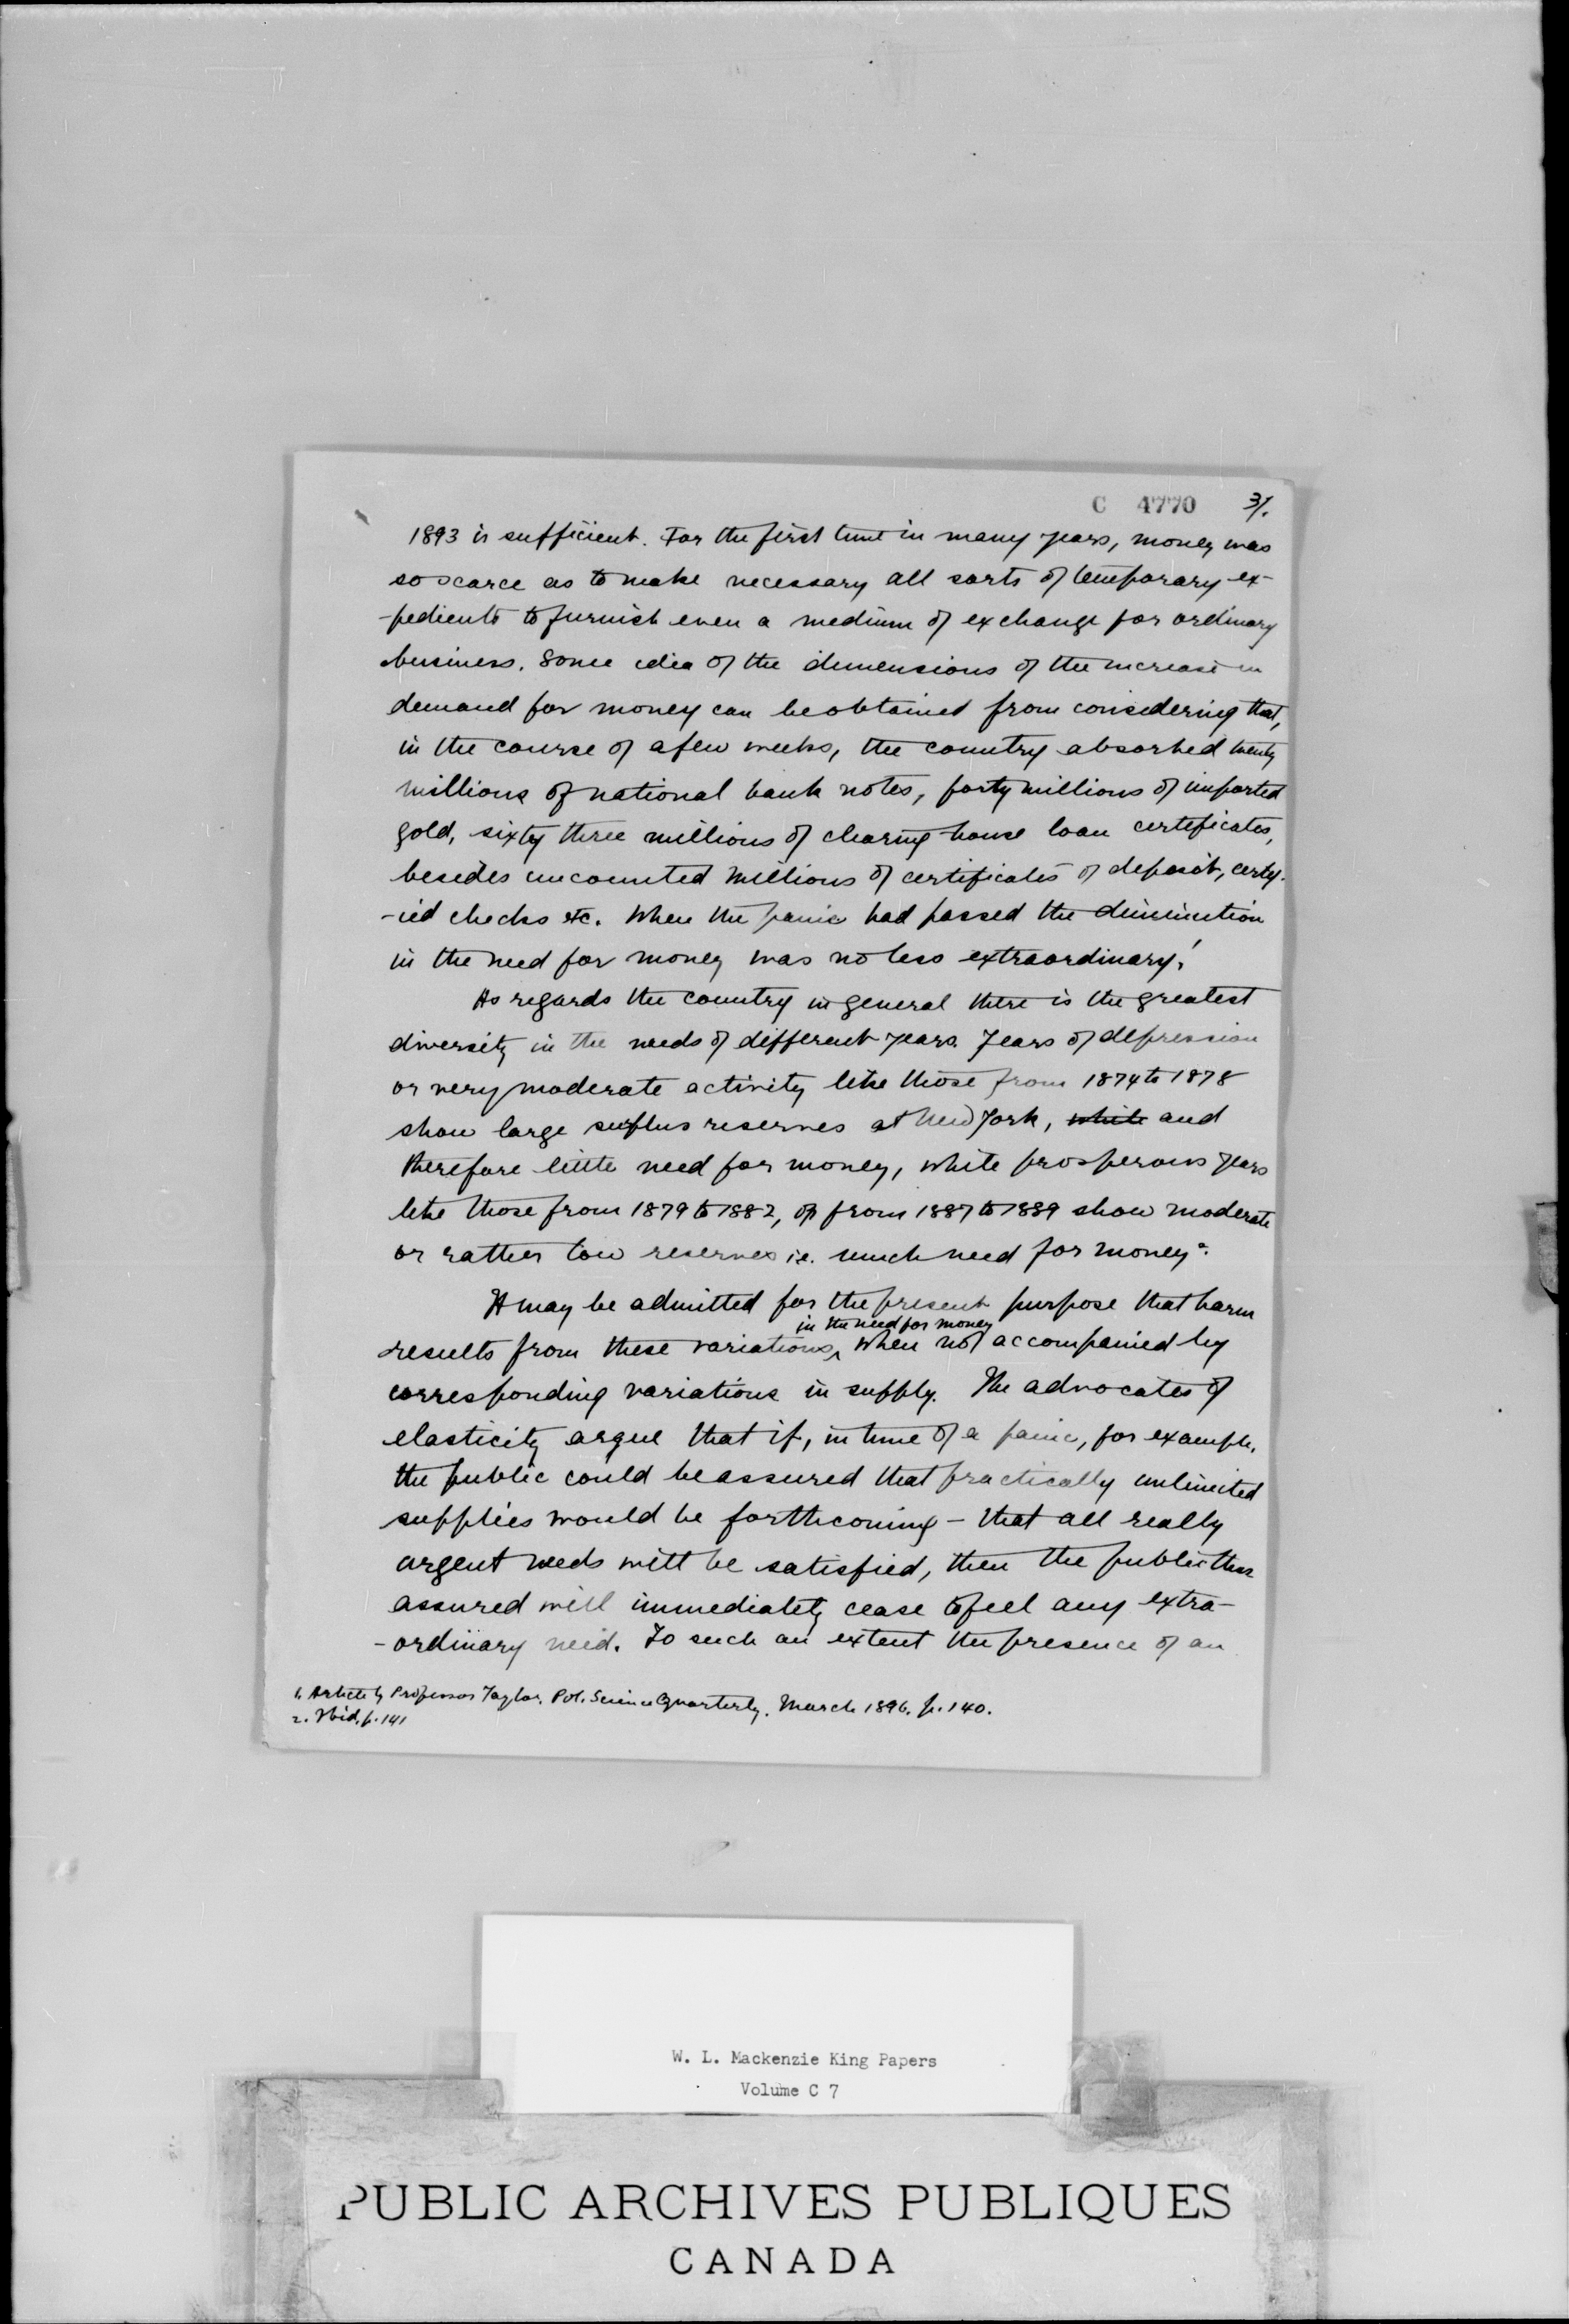 C 4770 31.
1893 is sufficient. For the first time in many years, money was
so scarce as to make necessary all sorts of temporary ex-
-pedients to furnish even a medium of exchange for ordinary
business. Some idea of the dimensions of the increase in
demand for money can be obtained from considering that,
in the course of a few weeks, the country absorbed twenty
millions of national bank notes, forty millions of imported
gold, sixty three millions of clearing-house loan certificates,
besides uncounted millions of certificates of deposit, certif-
-ied checks etc. When the panic had passed the diminution
in the need for money was no less extraordinary.1
As regards the country in general there is the greatest
diversity in the needs of different years. Years of depression
or very moderate activity like those from 1874 to 1878
show large surplus reserves at New York, while and
therefore little need for money, while prosperous years
like those from 1879 to 1882, or from 1887 to 1889 show moderate
or rather low reserves i.e. much need for money2.
It may be admitted for the present purpose that harm
in the need for money
results from these variations, when not accompanied by
corresponding variations in supply. The advocates of
elasticity argue that if, in time of a panic, for example,
the public could be assured that practically unlimited
supplies would be forthcoming - that all really
urgent needs will be satisfied, then the public thus
assured will immediately cease to feel any extra-
-ordinary need. To such an extent the presence of an
1. Article by Professor Taylor. Pol. Science Quarterly. March 1896. p. 140.
2. Ibid. p. 141
W. L. Mackenzie King Papers
Volume C 7
PUBLIC ARCHIVES PUBLIQUES
CANADA